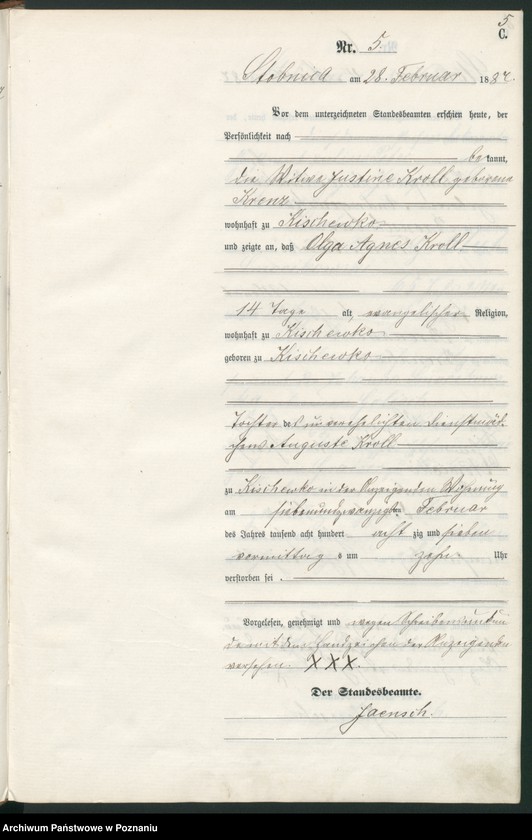 5
C.
Nr. 5.
Stobnica am 28. Februar 1887.
Vor dem unterzeichneten Standesbeamten erschien heute, der
Persönlichkeit nach
bekannt,
die Witwe Justine Kroll geborene
Krenz
wohnhaft zu Kischewko
und zeigte an, daß Olga Agnes Kroll
14 Tage alt, evangelischer Religion,
wohnhaft zu Kischewko
geboren zu Kischewko
Tochter des unverehelichten Dienstmäd-
chens Auguste Kroll
zu Kischewko in der Anzeigenden Wohnung
am siebenundzwanzigsten Februar
des Jahres tausend acht hundert achtzig und sieben
vormittags um zehn Uhr
verstorben sei.
Vorgelesen, genehmigt und wegen Schreibensunkunde
mit dem Handzeichen der Anzeigenden
versehen. XXX.
Der Standesbeamte.
Jaensch.
Archiwum Państwowe w Poznaniu